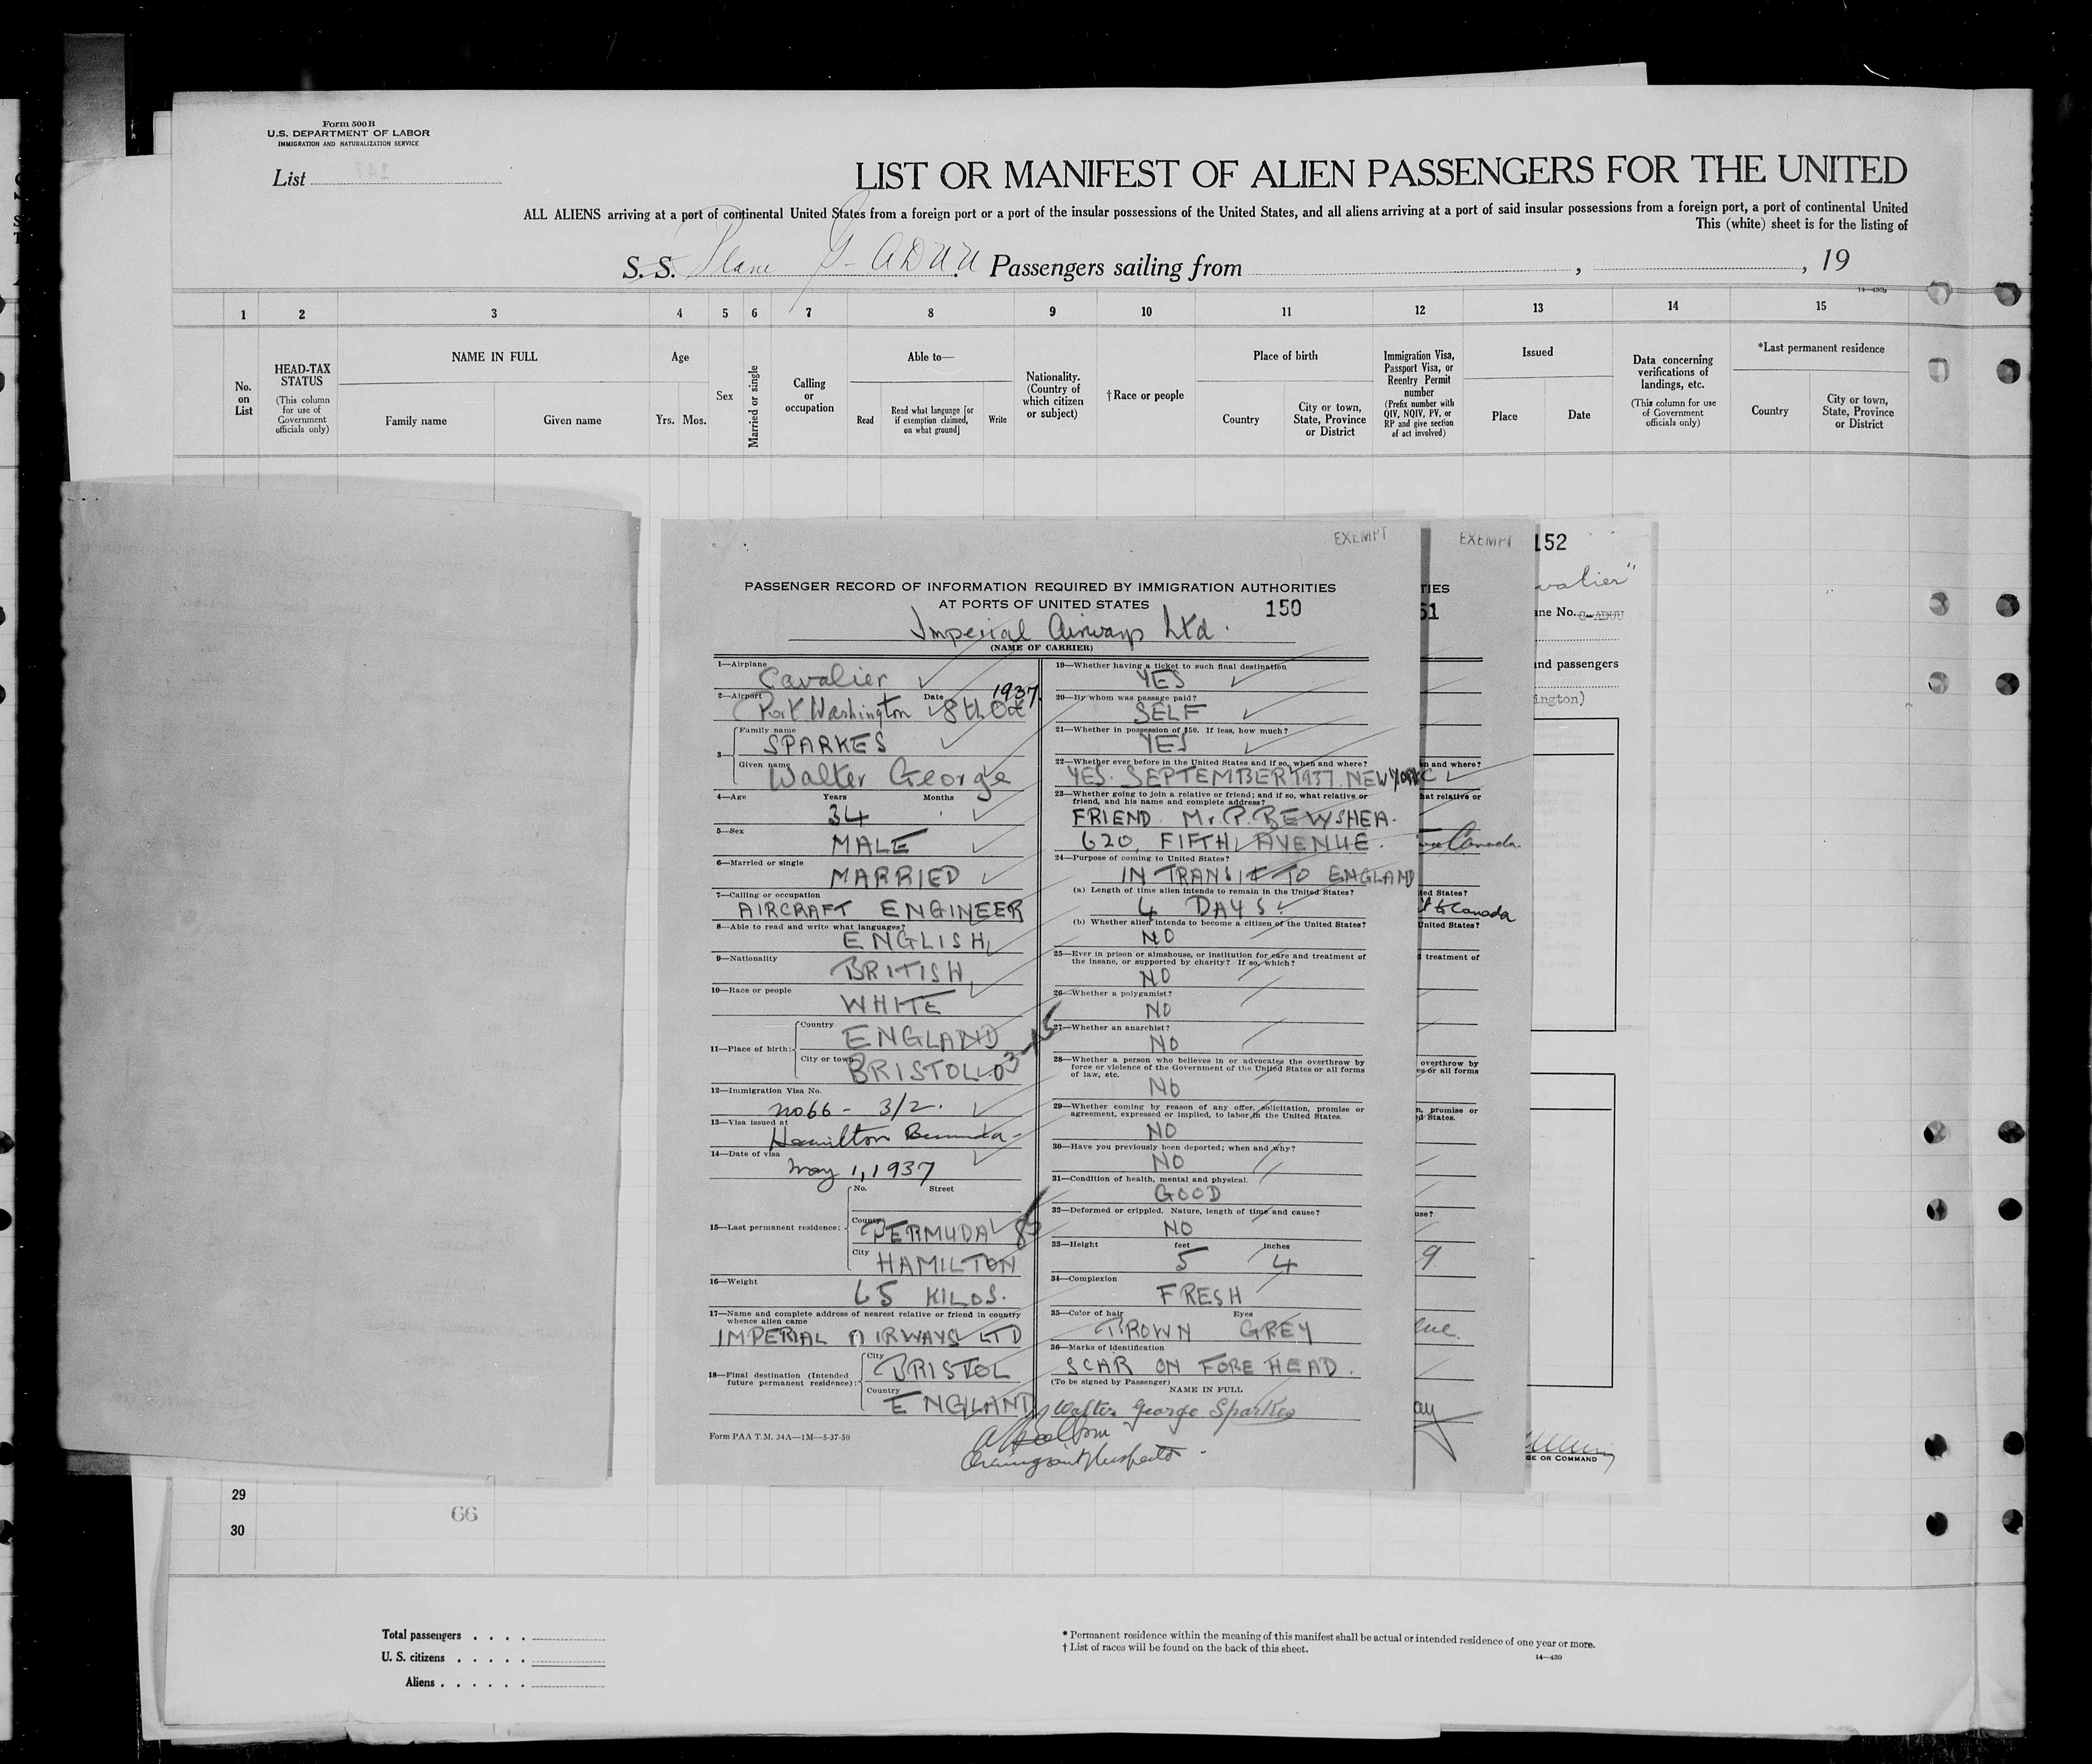 Form 500 B
U.S. DEPARTMENT OF LABOR
IMMIGRATION AND NATURALIZATION SERVICE
List
LIST OR MANIFEST OF ALIEN PASSENGERS FOR THE UNITED
ALL ALIENS arriving at a port of continental United States from a foreign port or a port of the insular possessions of the United States, and all aliens arriving at a port of said insular possessions from a foreign port, a port of continental United
This (white) sheet is for the listing of
S. S. Plane G-ADUU Passengers sailing from , , 19
14—430b
1 2 3 4 5 6 7 8 9 10 11 12 13 14 15
No. on List
HEAD-TAX STATUS
(This column for use of Government officials only)
NAME IN FULL
Family name Given name
Age
Yrs. Mos.
Sex
Married or single
Calling or occupation
Able to—
Read
Read what language [or if exemption claimed, on what ground]
Write
Nationality. (Country of which citizen or subject)
†Race or people
Place of birth
Country
City or town, State, Province or District
Immigration Visa, Passport Visa, or Reentry Permit number
(Prefix number with QIV, NQIV, PV, or RP and give section of act involved)
Issued
Place Date
Data concerning verifications of landings, etc.
(This column for use of Government officials only)
*Last permanent residence
Country
City or town, State, Province or District
EXEMPT
PASSENGER RECORD OF INFORMATION REQUIRED BY IMMIGRATION AUTHORITIES
AT PORTS OF UNITED STATES 150
Imperial Airways Ltd.
(NAME OF CARRIER)
1—Airplane
Cavalier
2—Airport Date 1937
Port Washington 8th Oct
3— Family name
SPARKES
Given name
Walter George
4—Age Years Months
34
5—Sex
MALE
6—Married or single
MARRIED
7—Calling or occupation
AIRCRAFT ENGINEER
8—Able to read and write what languages?
ENGLISH
9—Nationality
BRITISH
10—Race or people
WHITE
11—Place of birth: Country
ENGLAND
City or town
BRISTOL
12—Immigration Visa No.
No 66 - 3/2.
13—Visa issued at
Hamilton Bermuda
14—Date of visa
May 1, 1937
No. Street
15—Last permanent residence:
County
BERMUDA
City
HAMILTON
16—Weight
65 KILOS.
17—Name and complete address of nearest relative or friend in country
whence alien came
IMPERIAL AIRWAYS LTD
18—Final destination (Intended
future permanent residence):
City
BRISTOL
Country
ENGLAND
Form PAA T.M. 34A—1M—5-37-50
19—Whether having a ticket to such final destination
YES
20—By whom was passage paid?
SELF
21—Whether in possession of $50. If less, how much?
YES
22—Whether ever before in the United States and if so, when and where?
YES. SEPTEMBER 1937. NEW YORK
23—Whether going to join a relative or friend; and if so, what relative or
friend, and his name and complete address?
FRIEND. Mr. P. BEWSHEA.
620, FIFTH AVENUE.
24—Purpose of coming to United States?
IN TRANSIT TO ENGLAND
(a) Length of time alien intends to remain in the United States?
4 DAYS.
(b) Whether alien intends to become a citizen of the United States?
NO
25—Ever in prison or almshouse, or institution for care and treatment of
the insane, or supported by charity? If so, which?
NO
26—Whether a polygamist?
NO
27—Whether an anarchist?
NO
28—Whether a person who believes in or advocates the overthrow by
force or violence of the Government of the United States or all forms
of law, etc.
NO
29—Whether coming by reason of any offer, solicitation, promise or
agreement, expressed or implied, to labor in the United States.
NO
30—Have you previously been deported; when and why?
NO
31—Condition of health, mental and physical.
GOOD
32—Deformed or crippled. Nature, length of time and cause?
NO
33—Height feet inches
5 4
34—Complexion
FRESH
35—Color of hair Eyes
BROWN GREY
36—Marks of identification
SCAR ON FOREHEAD.
(To be signed by Passenger)
NAME IN FULL
Walter George Sparkes
EXEMPT
TIES
51
n and where?
hat relative or
Canada.
ted States?
t to Canada
United States?
d treatment of
overthrow by
es or all forms
n, promise or
ed States.
use?
9
lue.
ay
152
valier"
ane No. G-ADUU
and passengers
ington)
GE OR COMMAND
29
30
66
Total passengers
U. S. citizens
Aliens
* Permanent residence within the meaning of this manifest shall be actual or intended residence of one year or more.
† List of races will be found on the back of this sheet.
14—430